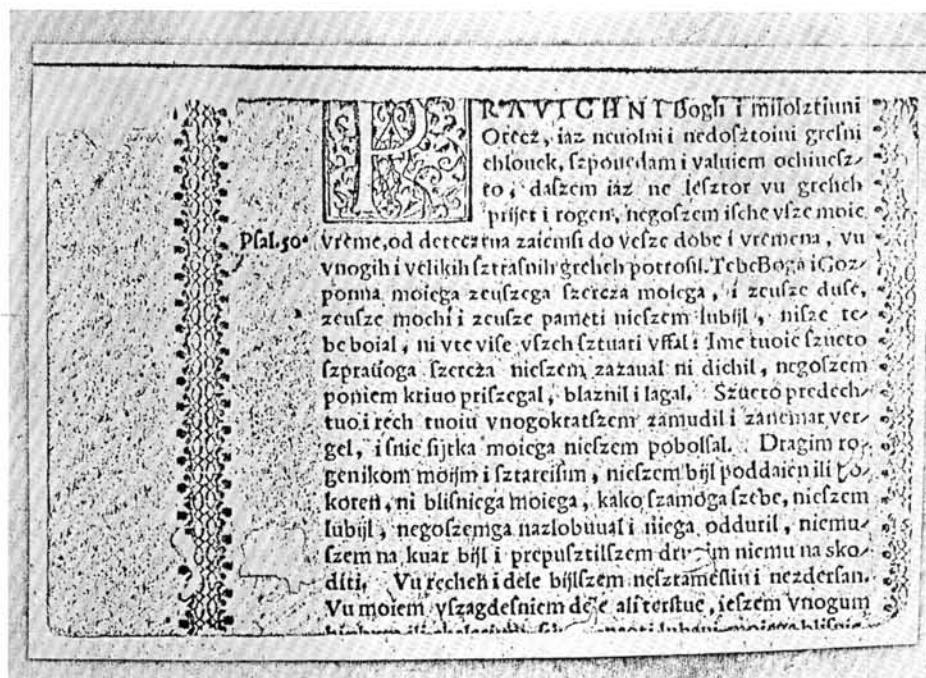 PRAVICHNI Bogh i miloſztiuni
Otecz, iaz neuolni i nedoſztoini greſni
chlouek, ſzpouedam i valuiem ochiuesz⸗
to, daſzem iaz ne leſztor vu greheh
prijet i rogen, negoſzem iſche vſze moie
Pſal.50.
vreme, od deteczтna zaiemſi do veſze dobe i vremena, vu
vnogih i velikih ſztraſnih greheh potroſil. Tebe Boga i Goz⸗
ponna moiega zeuſzega ſzercza moiega, i zeuſze duſe,
zeuſze mochi i zeuſze pameti nieſzem lubijl, niſze te⸗
be boial, ni vte viſe vſzeh ſztuari vffal: Ime tuoie ſzueto
ſzprauoga ſzercza nieſzem zazaual ni dichil, negoſzem
poniem kriuo priſzegal, blaznil i lagal. Szueto predech⸗
tuo i rech tuoiu vnogokratſzem zamudil i zanemar ver⸗
gel, i ſnie ſijtka moiega nieſzem pobolſal. Dragim ro⸗
genikom moijm i ſztareiſim, nieſzem bijl poddaien ili po⸗
koren, ni bliſniega moiega, kako ſzamoga ſzebe, nieſzem
lubijl, negoſzemga nazlobuual i niega odduril, niemu⸗
ſzem na kuar bijl i prepuſztilſzem drugim niemu na ſko⸗
diti. Vu recheh i dele bijlſzem neſztrameſliu i nezderſan.
Vu moiem vſzagdeſniem dele ali terſtue, ieſzem vnogum